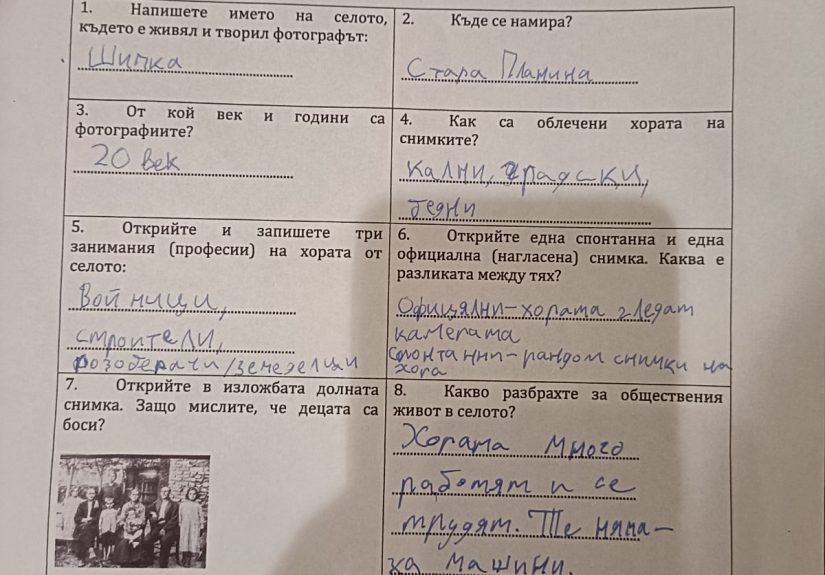 1. Напишете името на селото,
където е живял и творил фотографът:
Шипка
2. Къде се намира?
Стара Планина
3. От кой век и години са
фотографиите?
20 век
4. Как са облечени хората на
снимките?
кални, градски,
бедни
5. Открийте и запишете три
занимания (професии) на хората от
селото:
Войници,
строители,
розоберачи/земеделци
6. Открийте една спонтанна и една
официална (нагласена) снимка. Каква е
разликата между тях?
Офицялни-хората гледат
камерата
Спонтанни-рандом снимки на
хора
7. Открийте в изложбата долната
снимка. Защо мислите, че децата са
боси?
8. Какво разбрахте за обществения
живот в селото?
Хората много
работят и се
трудят. Те няма-
ха машини.